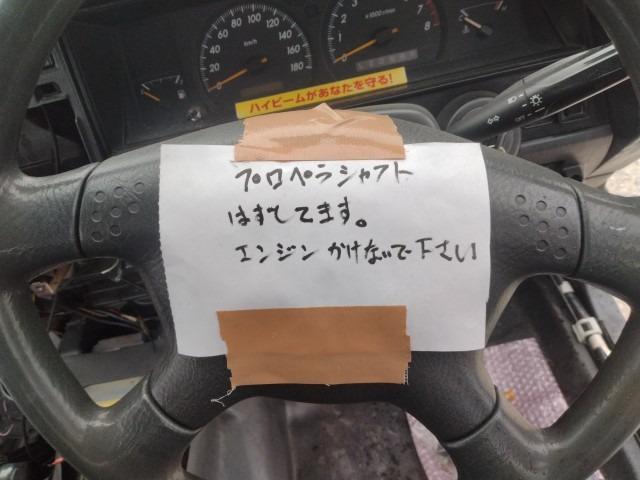 km/h
20
40
60
80
100
120
140
160
180
×1000r/min
1
2
3
7
8
F
ハイビームがあなたを守る!
プロペラシャフト
はずしてます。
エンジン かけないで下さい
OFF